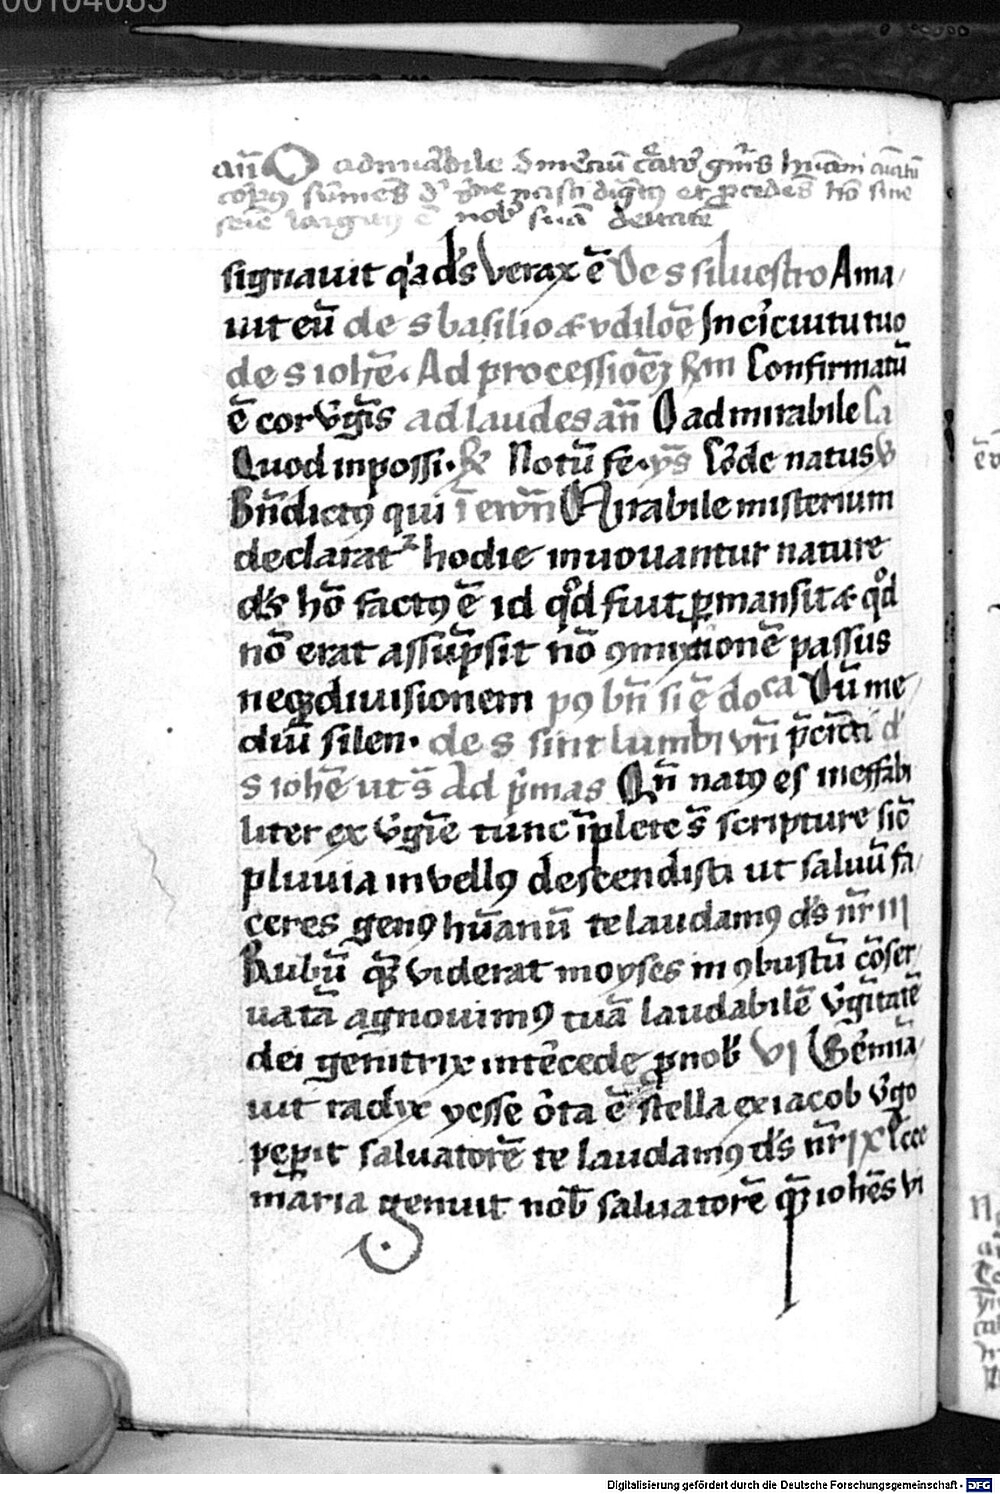 00104083
an̄ O admirabile cōmerciū c̄ator gn̄is hūani aīatū
corpꝰ sumēs de v̓gine nasci dignatꝰ ē et procedēs hō sine
seīe largitꝰ ē nob̓ suā deitatē
signauit q̓a ds̄ verax ē De s siluestro Ama
uit eū de s basilio & odiloē In circuitu tuo
de s iohē. Ad processioēꝫ Confirmatū
ē cor v̓gīs ad laudes an̄ O admirabile
Quod inpossi. Notū fe. ys̄ Lōde natus
Bn̄dictꝰ qui ī ewn̄ Mirabile misterium
declaratᷣ hodie innouantur nature
ds̄ hō factꝰ ē id qd̓ fuit ꝑmansit & qd̓
nō erat assūpsit nō ꝯmixtionē passus
neqꝫ diuisionem pꝰ bn̄ si ē do ca Dū me
diū silen. de s sint lumbi vr̄i p̄cīcti d̓
s iohē ut s̄ Ad p̓mas Qn̄ natꝰ es ineffabi
liter ex v̓gīe tunc īplete s̄ scripture sic̄
pluuia in vellꝰ descendisti ut saluū fa
ceres genꝰ hūanū te laudamꝰ ds̄ nr̄ III
Rubū quē viderat moyses in ꝯbustū cōser
uatā agnouimꝰ tuā laudabilē v̓gītatē
dei genitrix int̓cede ꝓ nob̓ VI Germīa
uit radix yesse orta ē stella ex iacob v̓go
peꝑit saluatorē te laudamꝰ ds̄ nr̄ IX Ecce
maria genuit nob̓ saluatorē quē iohēs vi
Digitalisierung gefördert durch die Deutsche Forschungsgemeinschaft - DFG